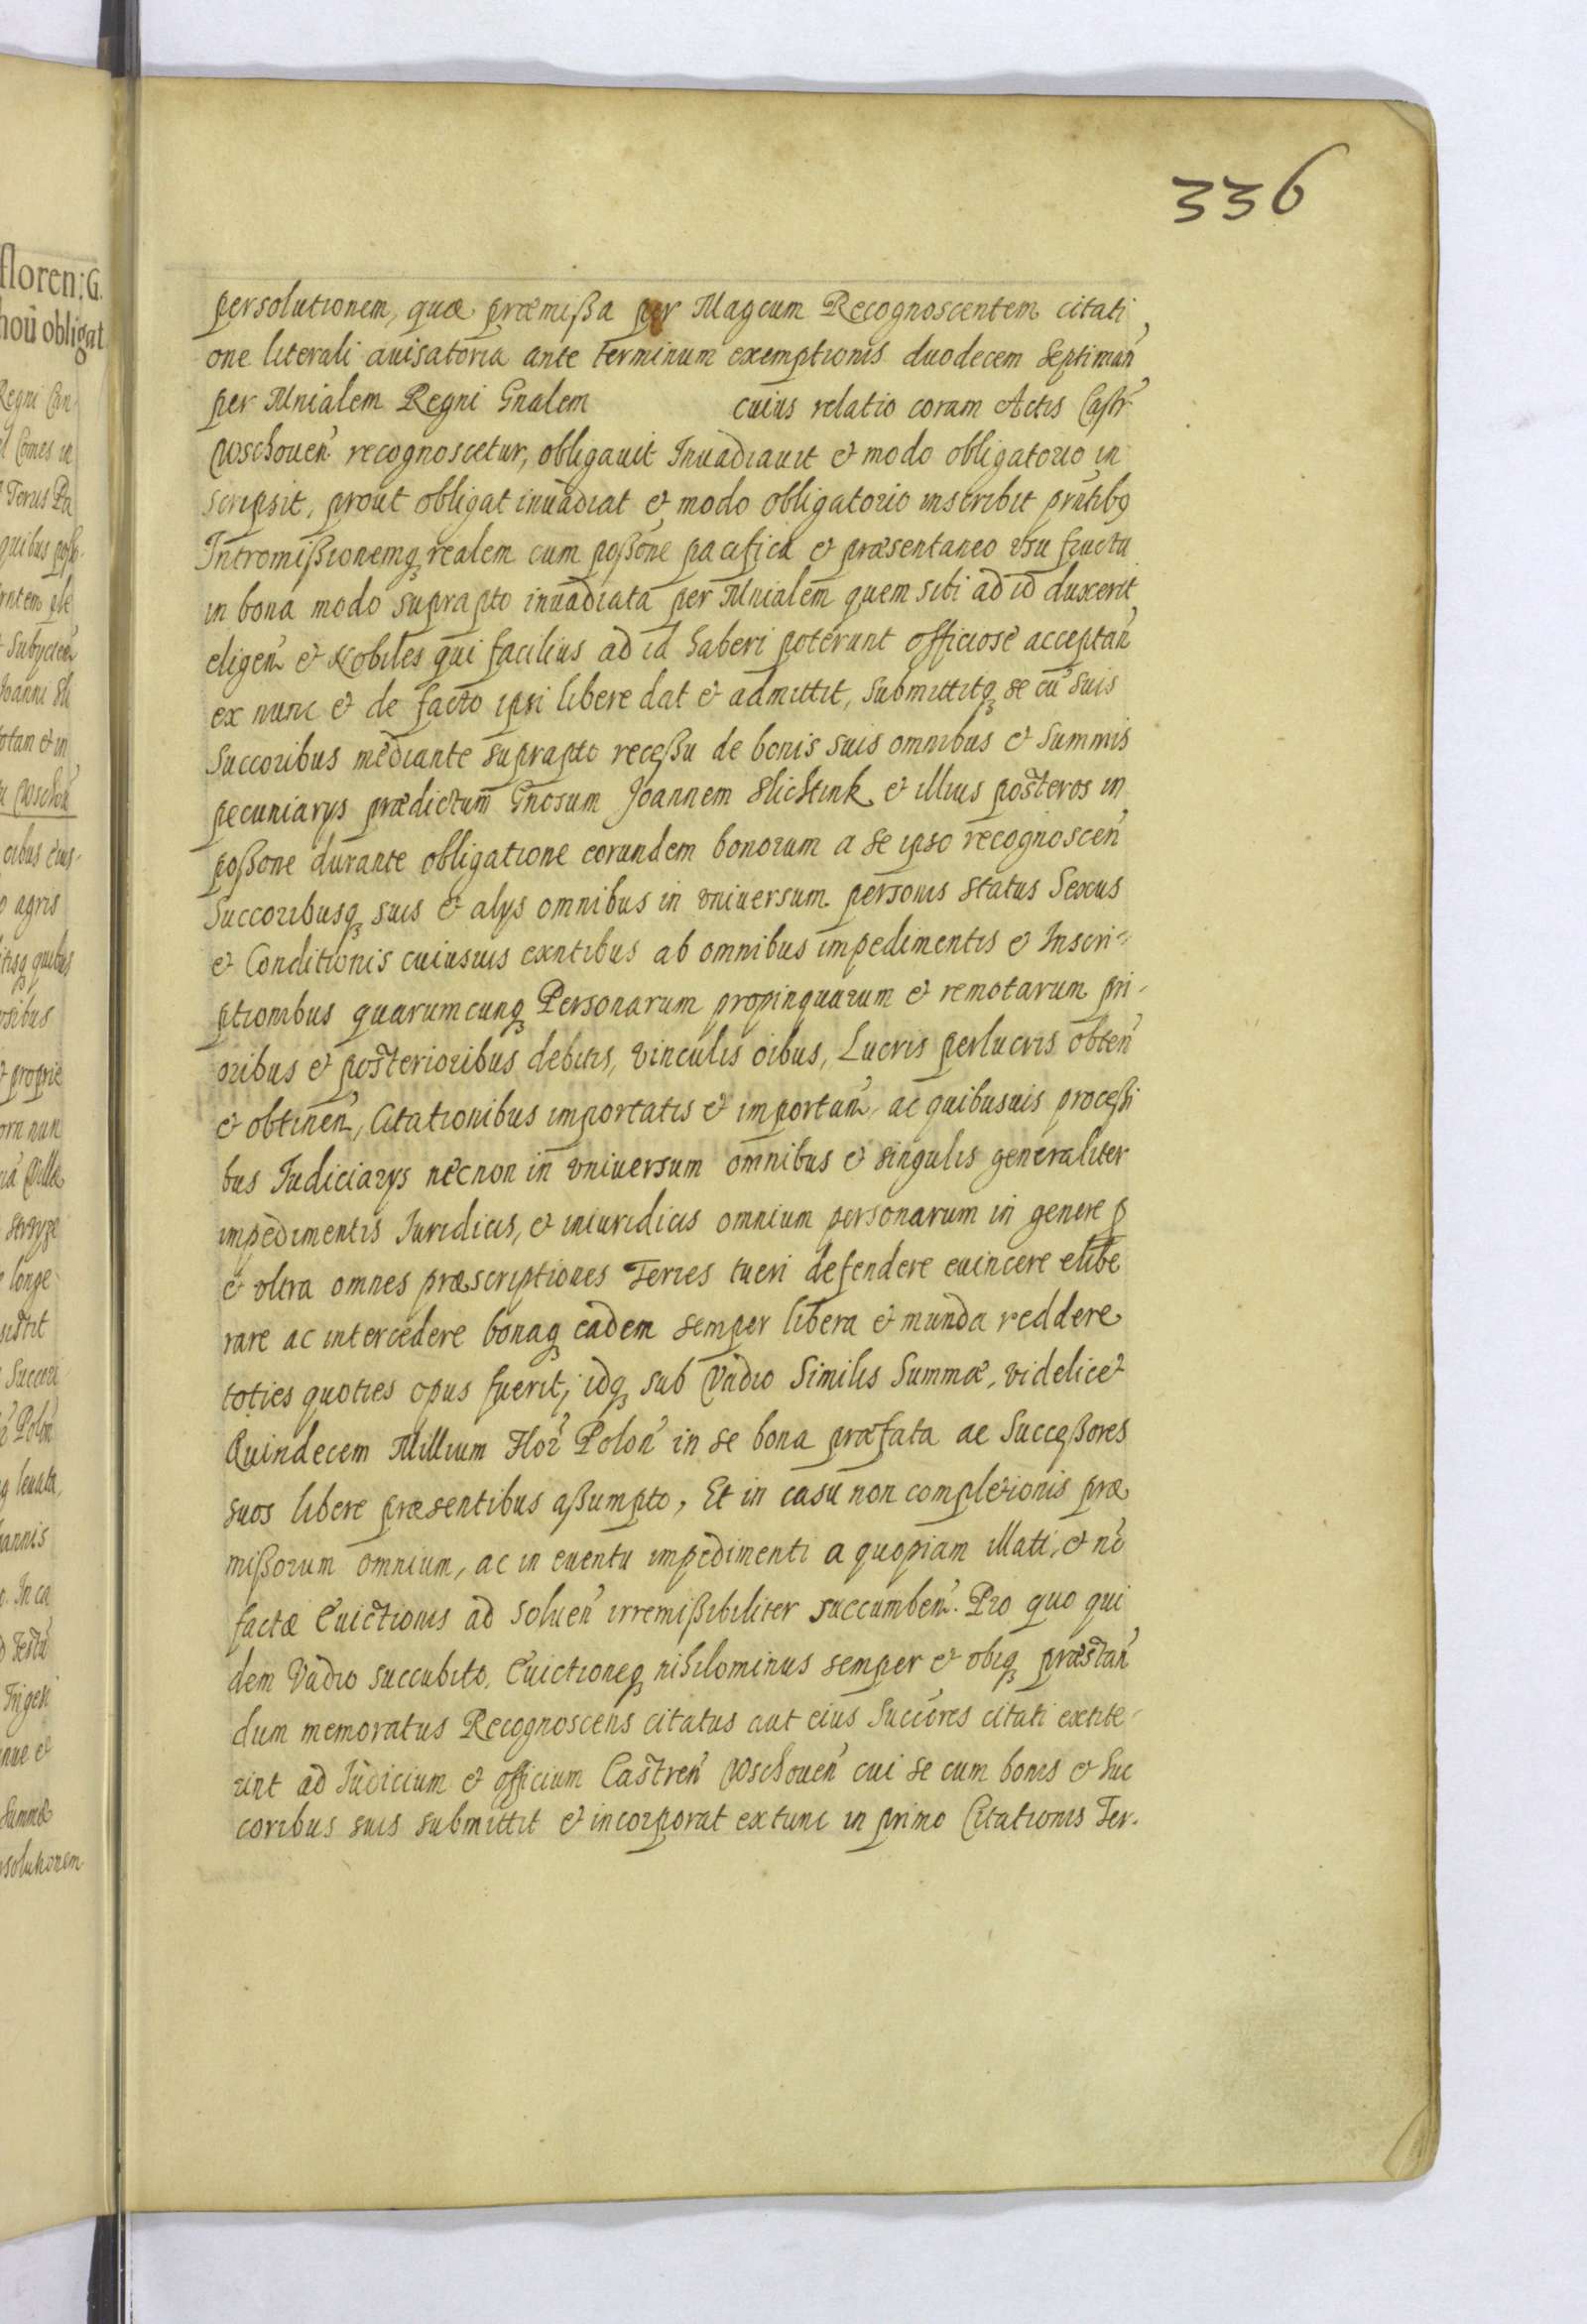 336
floren: G.
hoū obligat
Regni Can
Comes in
Torus Pa
quibus poss
subycien
Joanni Sli
otan et in
Woschou
oibus eius-
agris
itisq; quibus
sibus
et proprie
orn nun
Villa
longe
sistit
Succori
Polon
q; leuata,
annis
In ca
Testa
Trigesi
nue et
Summæ
rsolutionem
persolutionem, quæ præmißa per Magcum Recognoscentem citati
one literali auisatoria ante terminum exemptionis duodecem Septiman
per Mnialem Regni Gnalem cuius relatio coram Actis Castr
Woschouen recognoscetur, obligauit Inuadiauit et modo obligatorio in
scripsit, prout obligat inuadiat et modo obligatorio inscribit pntibq
Intromißionemq; realem cum poßone pacifica et præsentaneo vsu fructu
in bona modo suprapto inuadiata per Mnialem quem sibi ad id duxerit
eligen et Nobiles qui facilius ad id haberi poterunt officiose acceptan
ex nunc et de facto ipsi libere dat et admittit, submittitq; se cu suis
Succoribus mediante suprapto receßu de bonis suis omnibus et Summis
pecuniarys prædictum Gnosum Joannem Slichtink et illius posteros in
poßone durante obligatione eorundem bonorum a se ipso recognoscen
Succoribusq; suis et alys omnibus in vniuersum personis status Sexus
et Conditionis cuiusuis exntibus ab omnibus impedimentis et Inscri-
ptionibus quarumcunq; Personarum propinquarum et remotarum pri-
oribus et posterioribus debitis, vinculis oibus, Lucris perlucris obten
et obtinen, Citationibus importatis et importan, ac quibusuis proceßi
bus Iudiciarys necnon in vniuersum omnibus et singulis generaliter
impedimentis Iuridicis, et iniuridicis omnium personarum in genere p
et vltra omnes præscriptiones Terres tueri defendere euincere elibe
rare ac intercedere bonaq; eadem semper libera et munda reddere
toties quoties opus fuerit, idq; sub Vadio Similis Summæ, videlicet
Quindecem Millium Flor Polon in se bona præfata ac Succeßores
suos libere præsentibus aßumpto, Et in casu non completionis præ
mißorum omnium, ac in euentu impedimenti a quopiam illati, et no
factæ Euictionis ad soluen irremißibiliter succumben. Pro quo qui
dem Vadio succubito, Euictioneq; nihilominus semper et obiq; præstan
dum memoratus Recognoscens citatus aut eius Succores citati extite-
rint ad Iudicium et officium Castren Woschouen cui se cum bonis et Suc
coribus suis submittit et incorporat extunc in primo Citationis Ter.